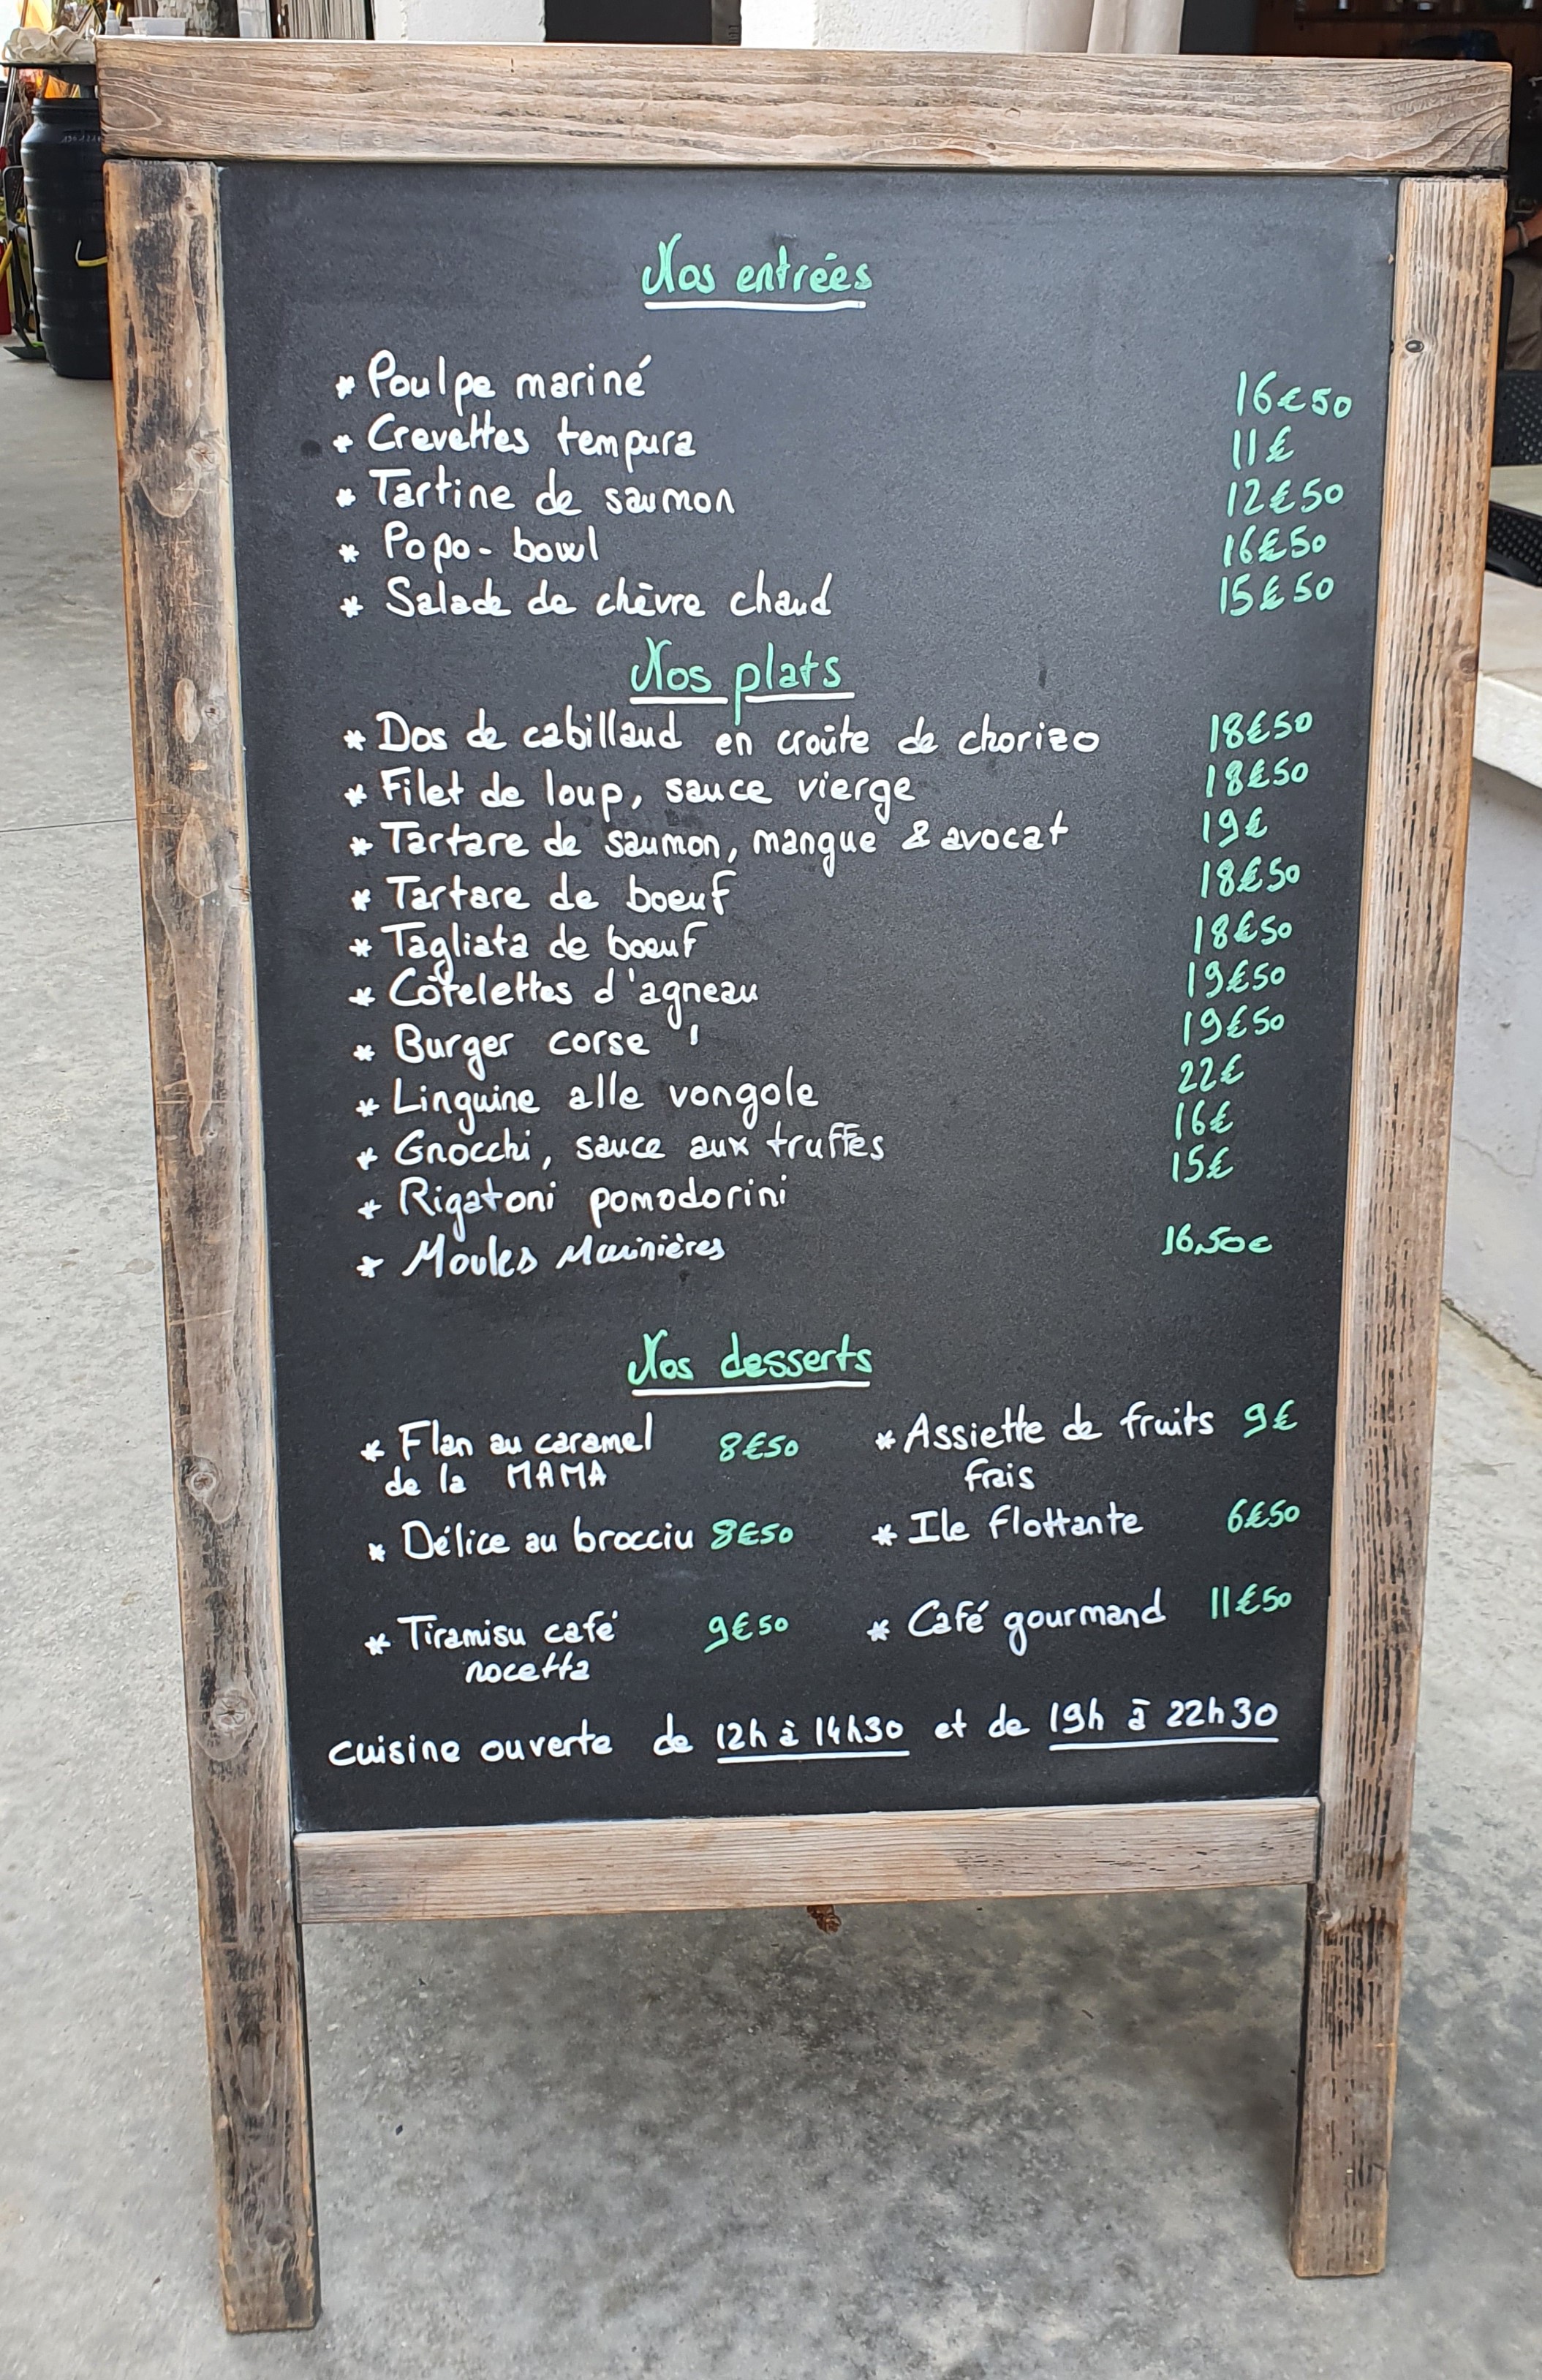 Nos entrées
* Poulpe mariné 16€50
* Crevettes tempura 11€
* Tartine de saumon 12€50
* Popo-bowl 16€50
* Salade de chèvre chaud 15€50
Nos plats
* Dos de cabillaud en croûte de chorizo 18€50
* Filet de loup, sauce vierge 18€50
* Tartare de saumon, mangue & avocat 19€
* Tartare de boeuf 18€50
* Tagliata de boeuf 18€50
* Côtelettes d'agneau 19€50
* Burger corse 19€50
* Linguine alle vongole 22€
* Gnocchi, sauce aux truffes 16€
* Rigatoni pomodorini 15€
* Moules Marinières 16.50€
Nos desserts
* Flan au caramel 8€50 * Assiette de fruits 9€
de la MAMA frais
* Délice au brocciu 8€50 * Ile flottante 6€50
* Tiramisu café 9€50 * Café gourmand 11€50
nocetta
cuisine ouverte de 12h à 14h30 et de 19h à 22h30